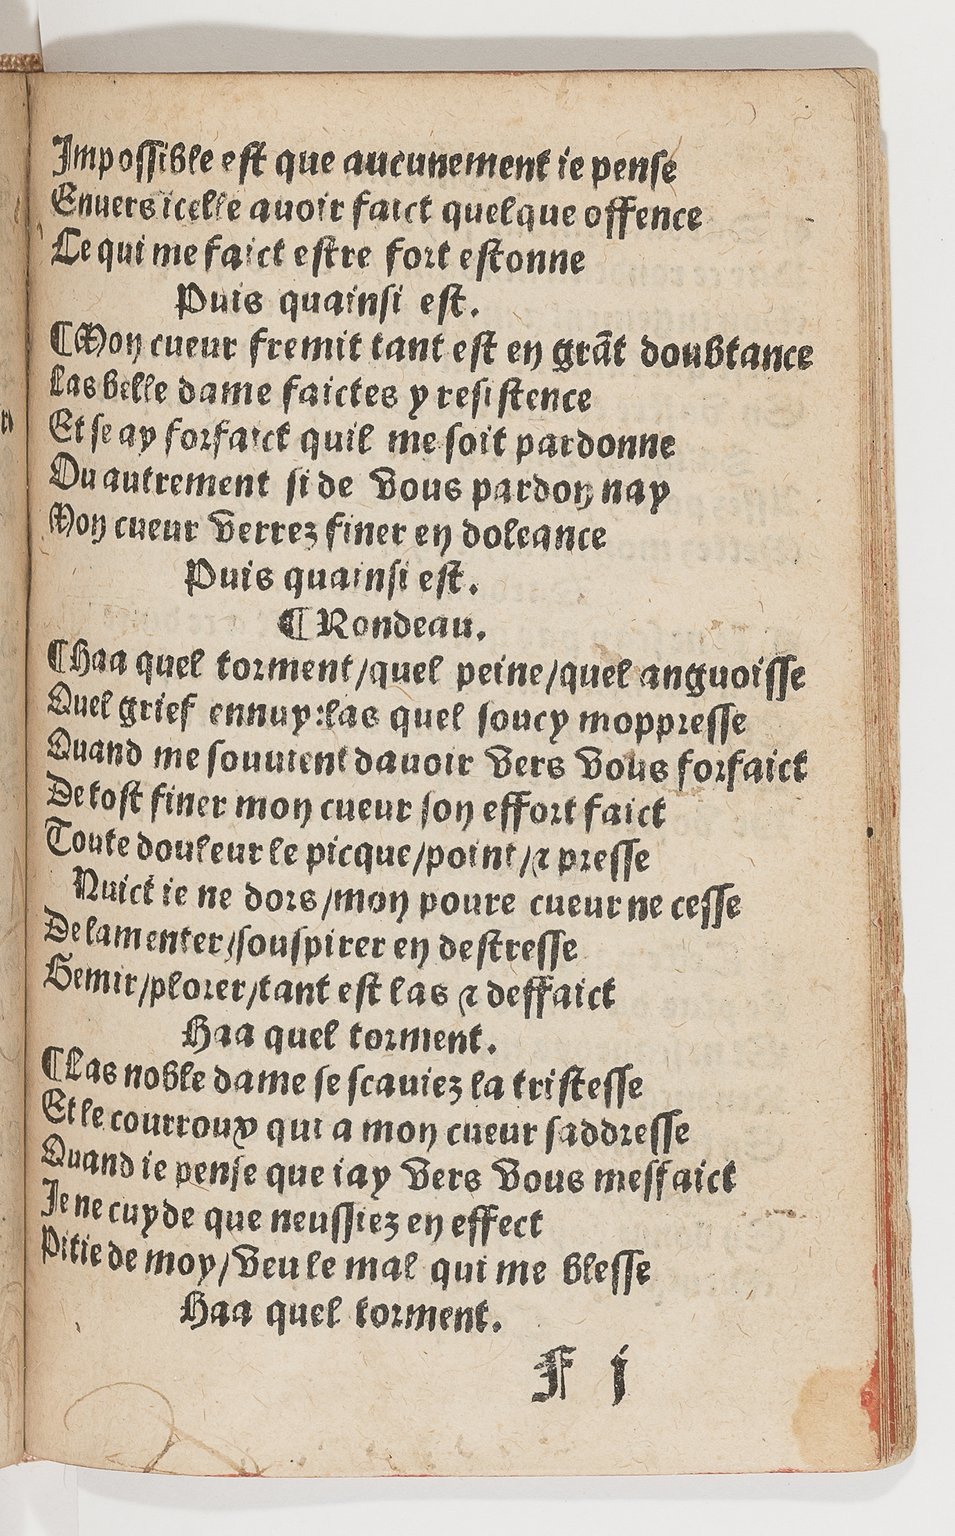 Impossible est que aucunement ie pense
Enuers icelle auoir faict quelque offence
Ce qui me faict estre fort estonne
Puis quainsi est.
¶Mon cueur fremit tant est en grãt doubtance
Las belle dame faictes y resistence
Et se ay forfaict quil me soit pardonne
Ou autrement si de vous pardon nay
Mon cueur verrez finer en doleance
Puis quainsi est.
¶Rondeau.
¶Haa quel torment/quel peine/quel anguoisse
Quel grief ennuy:las quel soucy moppresse
Quand me souuient dauoir vers vous forfaict
De tost finer mon cueur son effort faict
Toute douleur le picque/point/⁊ presse
Nuict ie ne dors/mon poure cueur ne cesse
De lamenter/souspirer en destresse
Gemir/plorer/tant est las ⁊ deffaict
Haa quel torment.
¶Las noble dame se scauiez la tristesse
Et le courroux qui a mon cueur saddresse
Quand ie pense que iay vers vous meffaict
Je ne cuyde que neussiez en effect
Pitie de moy/veu le mal qui me blesse
Haa quel torment.
F j